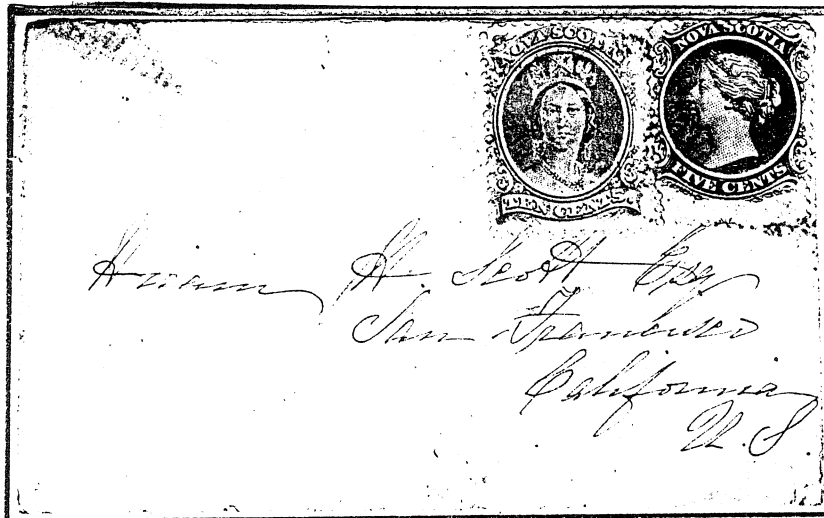 NOVA SCOTIA
TEN CENTS
NOVA SCOTIA
FIVE CENTS
Hiram H. Scott Esq
San Francisco
California
U.S.